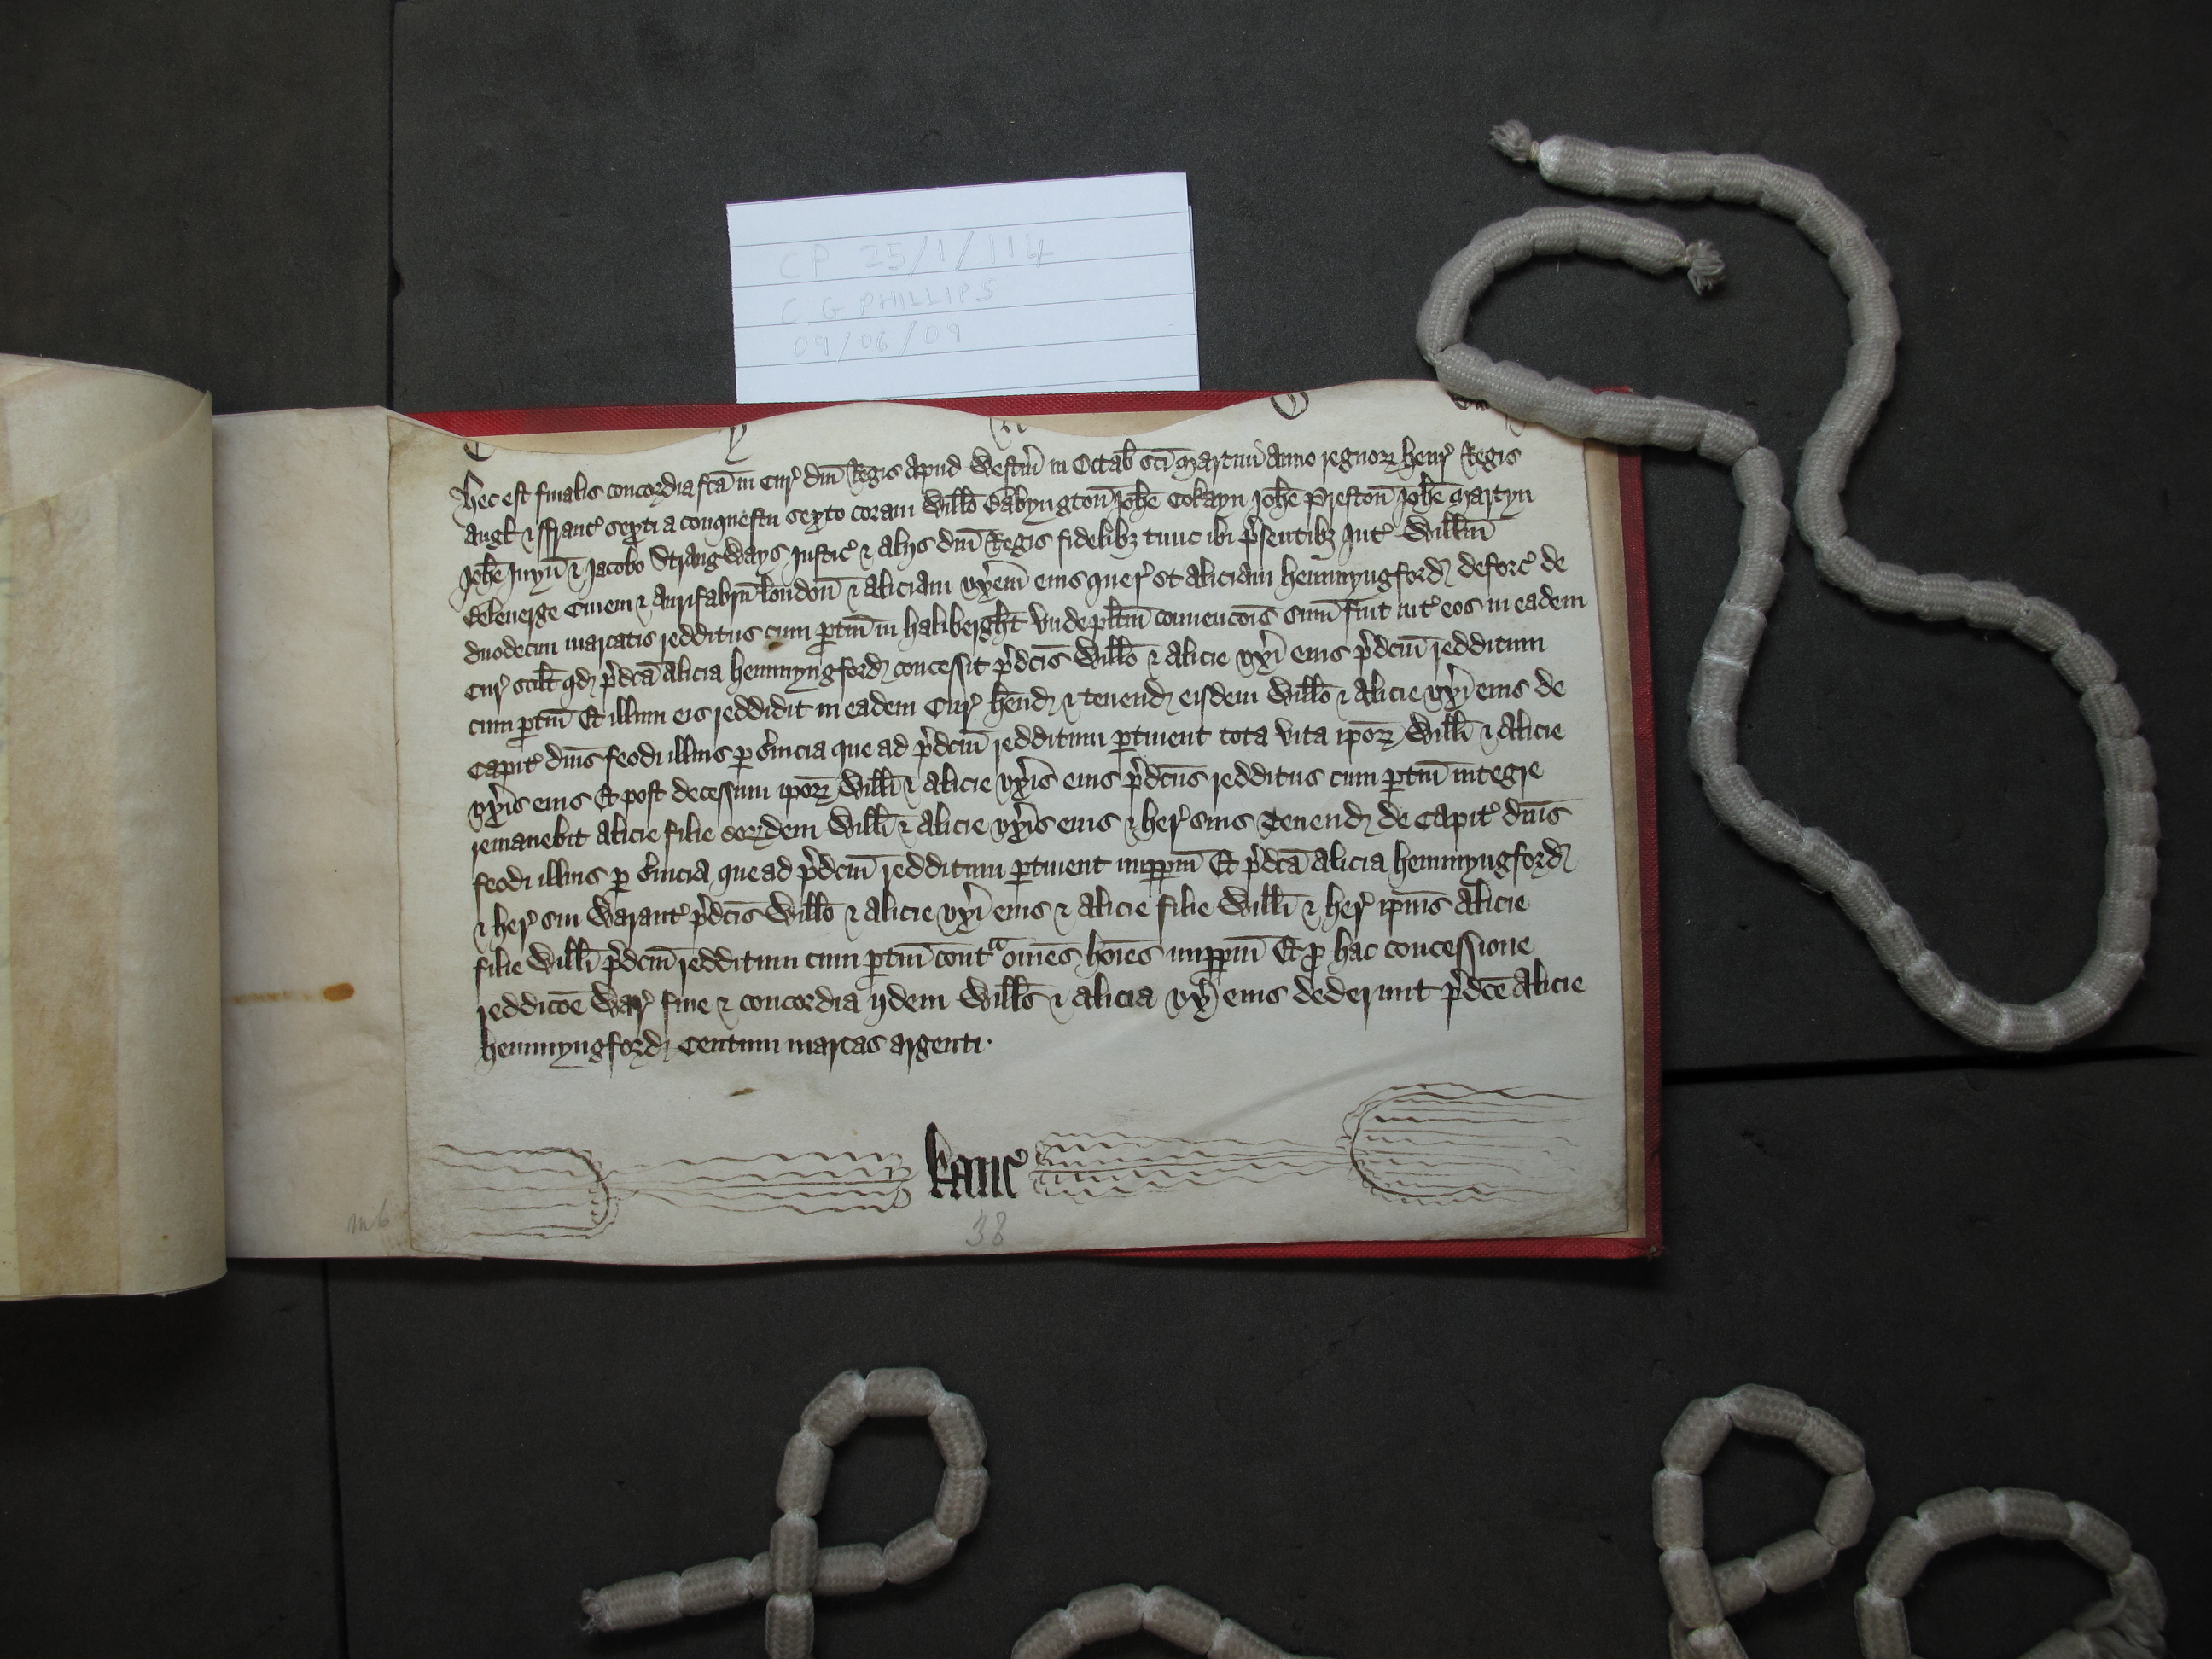 CP 25/1/114
C G PHILLIPS
09/06/09
Hec est finalis concordia fc̄a in Cur̉ dn̄i Regis apud Westm̄ in Octab̄ sc̄i Martini anno regnoꝝ Henr̉ Regis
Angl̄ & Franc̉ sexti a conquestu sexto coram Will̄o Babyngton̄ Joh̄e Cokayn Joh̄e Preston̄ Joh̄e Martyn
Joh̄e Juyn̄ & Jacobo Strangways Justic̉ & alijs dn̄i Regis fidelibꝫ tunc ibi p̉sentibꝫ Int̉ Will̄m
Civem & Aurifabrū London̄ & Aliciam vx̉em eius quer̉ Et Aliciam Hemmyngford deforc̉ de
duodecim marcatis redditus cum ꝑtin̄ in Halibergh̄t vnde pl̄itm̄ convencōis sum̄ fuit int̉ eos in eadem
Cur̉ scilt̄ qd p̉dc̄a Alicia Hemmyngford concessit p̉dc̄is Will̄o & Alicie vx̉i eius p̉dc̄m̄ redditum
cum ꝑtin̄ Et illum eis reddidit in eadem Cur̉ Hend & tenend eisdem Will̄o & Alicie vx̉i eius de
Capit̉ dn̄is feodi illius ꝑ s̉uicia que ad p̉dc̄m̄ redditum ꝑtinent tota vita ip̄oꝝ Will̄i & Alicie
vx̉is eius Et post decessum ip̄oꝝ Will̄i & Alicie vx̉is eius p̉dc̄us redditus cum ꝑtin̄ integre
remanebit Alicie filie eoꝝdem Will̄i & Alicie vx̉is eius & her̉ suis Tenend de Capit̉ dn̄is
feodi illius ꝑ s̉uicia que ad p̉dc̄m̄ redditum ꝑtinent imꝑpm̄ Et p̉dc̄a Alicia Hemmyngford
& her̉ sui Warant̉ p̉dc̄is Will̄o & Alicie vx̉i eius & Alicie filie Will̄i & her̉ ip̄ius Alicie
filie Will̄i p̉dc̄m̄ redditum cum ꝑtin̄ contᵃ om̄es hoīes imꝑpm̄ Et ꝓ hac concessione
reddicōe War̉ fine & concordia ijdem Will̄s & Alicia vx̉ eius dederunt p̉dc̄e Alicie
Hemmyngford Centum marcas argenti.
Kanc̉
38
m 6